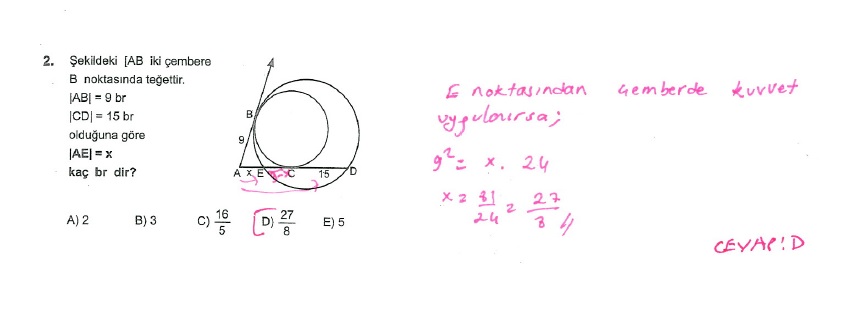 2. Şekildeki [AB iki çembere
B noktasında teğettir.
|AB| = 9 br
|CD| = 15 br
olduğuna göre
|AE| = x
kaç br dir?
B
9
A x E 9-x C 15 D
A) 2 B) 3 C) 16/5 D) 27/8 E) 5
E noktasından çemberde kuvvet
uygulanırsa;
9² = x . 24
x = 81/24 = 27/8 //
CEVAP: D